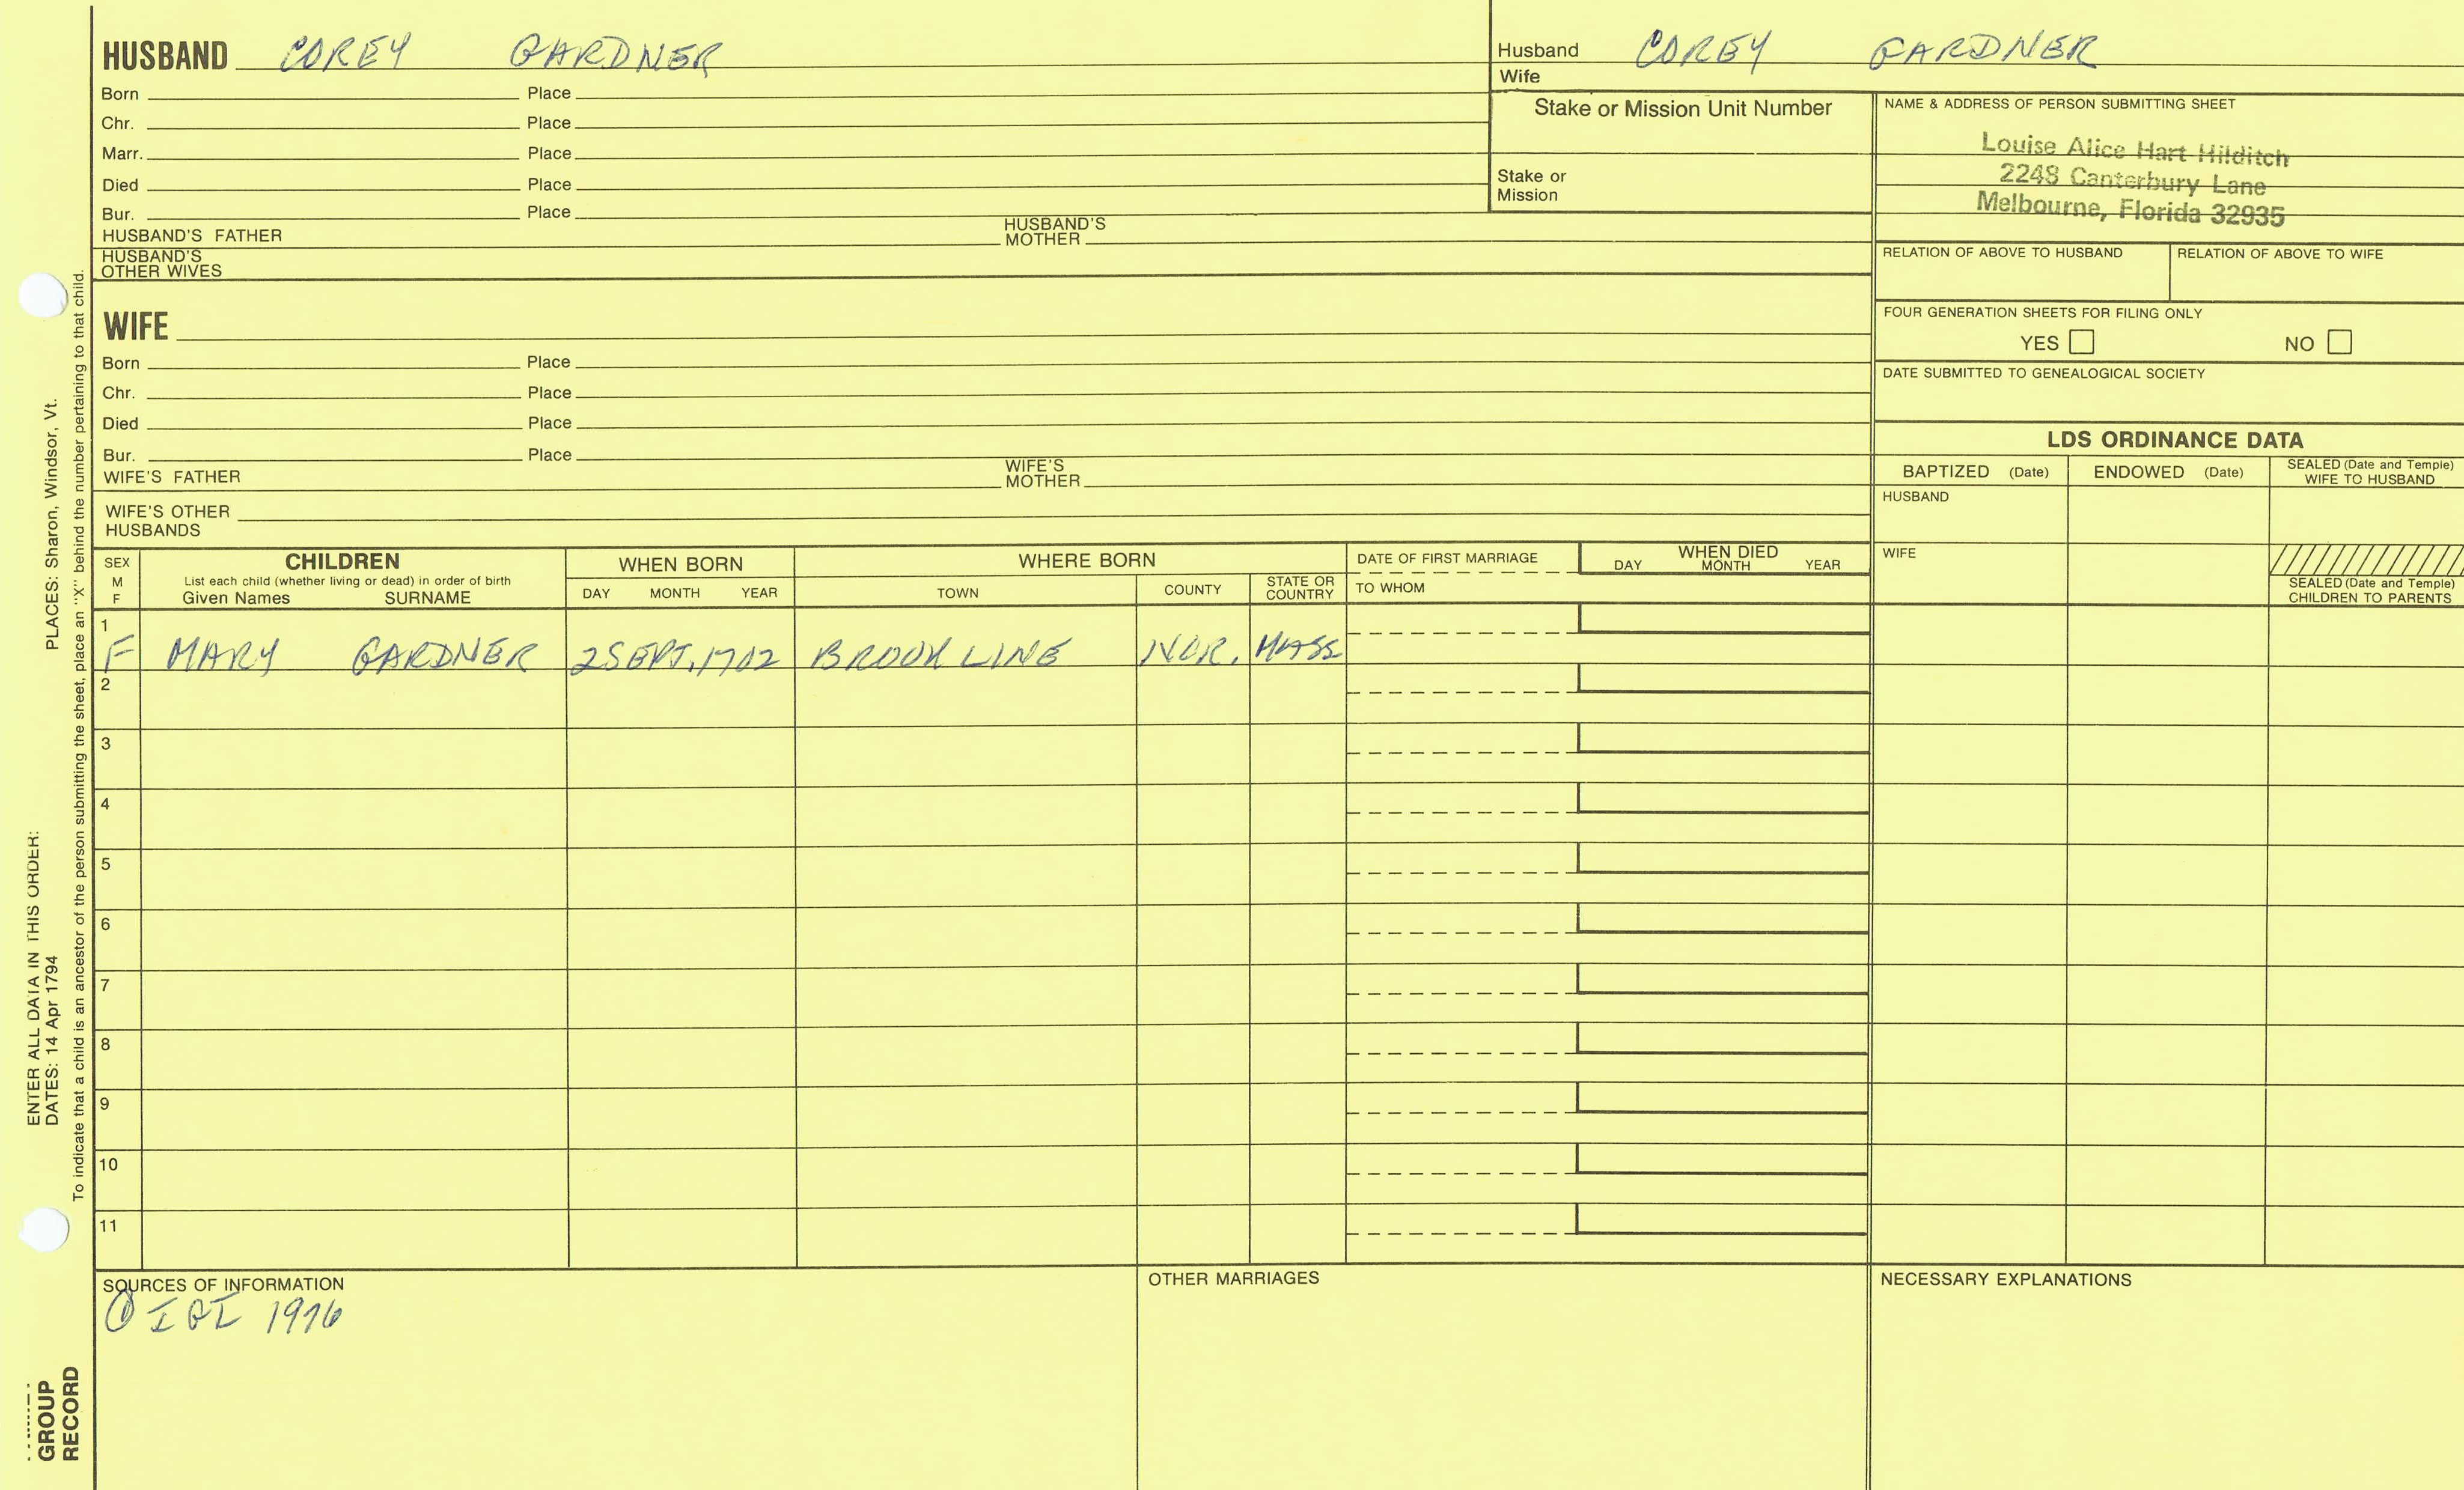 HUSBAND COREY GARDNER
Born Place
Chr. Place
Marr. Place
Died Place
Bur. Place
HUSBAND'S FATHER HUSBAND'S MOTHER
HUSBAND'S OTHER WIVES
Husband COREY GARDNER
Wife
Stake or Mission Unit Number
Stake or Mission
NAME & ADDRESS OF PERSON SUBMITTING SHEET
Louise Alice Hart Hilditch
2248 Canterbury Lane
Melbourne, Florida 32935
RELATION OF ABOVE TO HUSBAND RELATION OF ABOVE TO WIFE
FOUR GENERATION SHEETS FOR FILING ONLY
YES NO
DATE SUBMITTED TO GENEALOGICAL SOCIETY
WIFE
Born Place
Chr. Place
Died Place
Bur. Place
WIFE'S FATHER WIFE'S MOTHER
WIFE'S OTHER HUSBANDS
LDS ORDINANCE DATA
BAPTIZED (Date) ENDOWED (Date) SEALED (Date and Temple) WIFE TO HUSBAND
HUSBAND
WIFE
SEALED (Date and Temple) CHILDREN TO PARENTS
SEX M F
CHILDREN
List each child (whether living or dead) in order of birth
Given Names SURNAME
WHEN BORN
DAY MONTH YEAR
WHERE BORN
TOWN COUNTY STATE OR COUNTRY
DATE OF FIRST MARRIAGE
TO WHOM
WHEN DIED
DAY MONTH YEAR
1
F MARY GARDNER 2 SEPT, 1702 BROOKLINE NOR. MASS
2
3
4
5
6
7
8
9
10
11
SOURCES OF INFORMATION
① IGI 1976
OTHER MARRIAGES
NECESSARY EXPLANATIONS
ENTER ALL DATA IN THIS ORDER:
DATES: 14 Apr 1794 PLACES: Sharon, Windsor, Vt.
To indicate that a child is an ancestor of the person submitting the sheet, place an "X" behind the number pertaining to that child.
GROUP
RECORD